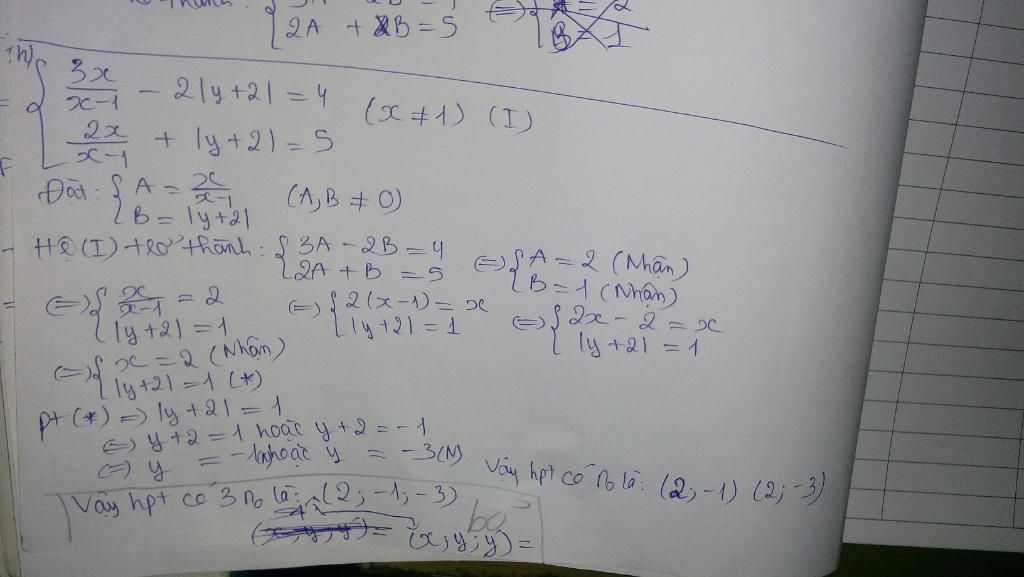 2A + 2B = 5
h)
{ 3x/(x-1) - 2|y+2| = 4
{ 2x/(x-1) + |y+2| = 5 (x ≠ 1) (I)
Đặt: { A = x/(x-1)
{ B = |y+2| (A, B ≠ 0)
Hệ (I) trở thành: { 3A - 2B = 4 ⇔ { A = 2 (Nhận)
{ 2A + B = 5 { B = 1 (Nhận)
⇔ { x/(x-1) = 2 ⇔ { 2(x-1) = x ⇔ { 2x - 2 = x
{ |y+2| = 1 { |y+2| = 1 { |y+2| = 1
⇔ { x = 2 (Nhận)
{ |y+2| = 1 (*)
pt (*) ⇒ |y+2| = 1
⇔ y+2 = 1 hoặc y+2 = -1
⇔ y = -1(N) hoặc y = -3(N)
Vậy hpt có n0 là: (2; -1) (2; -3)
Vậy hpt có 3 n0 là: (2; -1; -3)
bỏ
(x; y; y) =